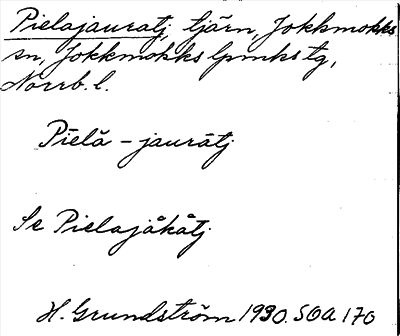 Pielajauratj, tjärn, Jokkmokks
sn, Jokkmokks lpmks tg,
Norrb. l.
Pīelā - jaurātj
Se Pielajåkåtj
H. Grundström 1930. SOA 170